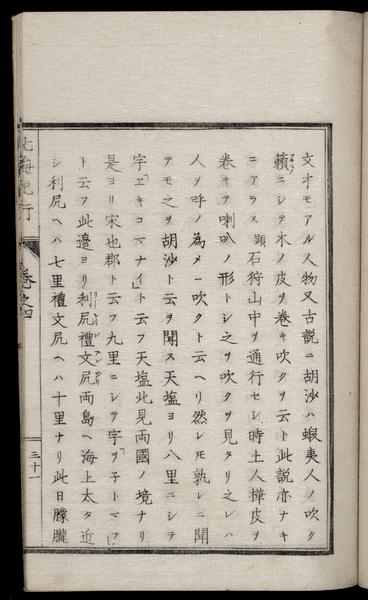 文オモアル人物又古説ニ胡沙ハ蝦夷人ノ吹ク
籟ニシテ木ノ皮ヲ卷キ吹クヲ云ト此説亦ナキ
ニアラス頭石狩山中ヲ通行セシ時土人樺皮ヲ
卷キテ喇叭ノ形トシ之ヲ吹クヲ見タリ之レハ
人ヲ呼ノ為メニ吹クト云ヘリ然レ𪜈孰レニ聞
テモ之ヲ胡沙ト云ヲ聞ス天塩ヨリ八里ニシテ
字「エキコマナイ」ト云フ天塩北見両國ノ境ナリ
是ヨリ宋也郡ト云フ九里ニシテ字ヲ「子トマフ」
ト云フ此邉ヨリ利尻禮文尻両島ヘ海上太タ近
シ利尻ヘハ七里禮文尻ヘハ十里ナリ此日朦朧
北海紀行
卷之四
三十一